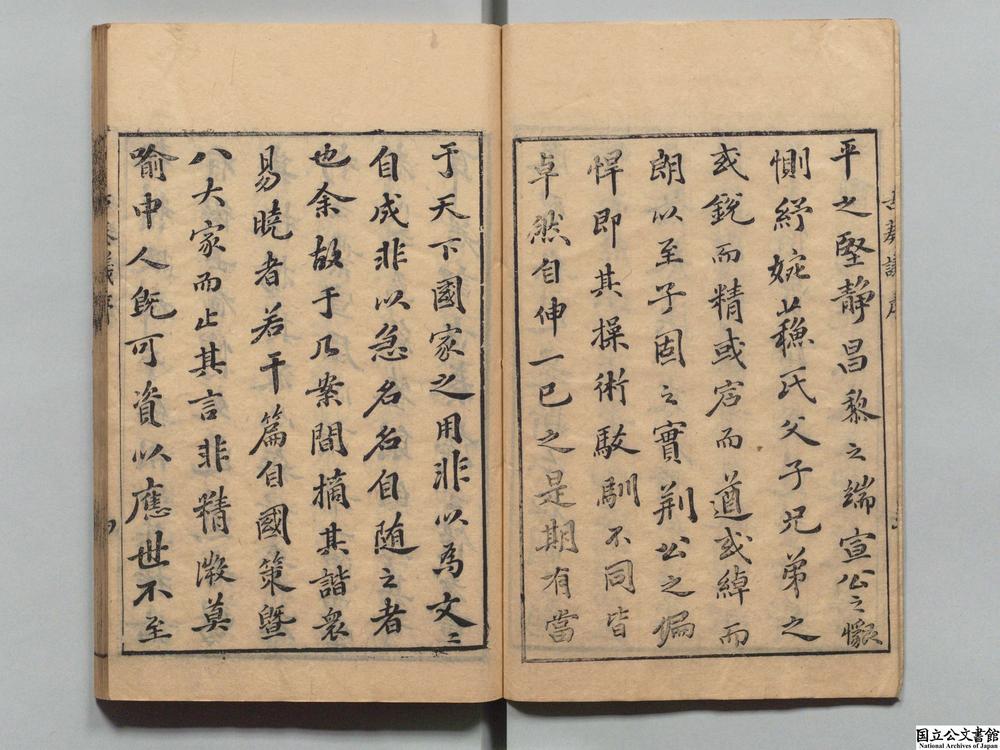 平之堅靜昌黎之端宣公之懇
惻紓婉蘓氏父子兄弟之
或銳而精或宕而遒或綽而
朗以至子固之實荆公之偏
悍即其操術駁馴不同皆
卓然自伸一已之是期有當
于天下國家之用非以為文二
自成非以急名名自随之者
也余故于几案間摘其諧衆
易曉者若干篇自國策曁
八大家而止其言非精㴱莫
喻中人旣可資以應世不至
国立公文書館
National Archives of Japan